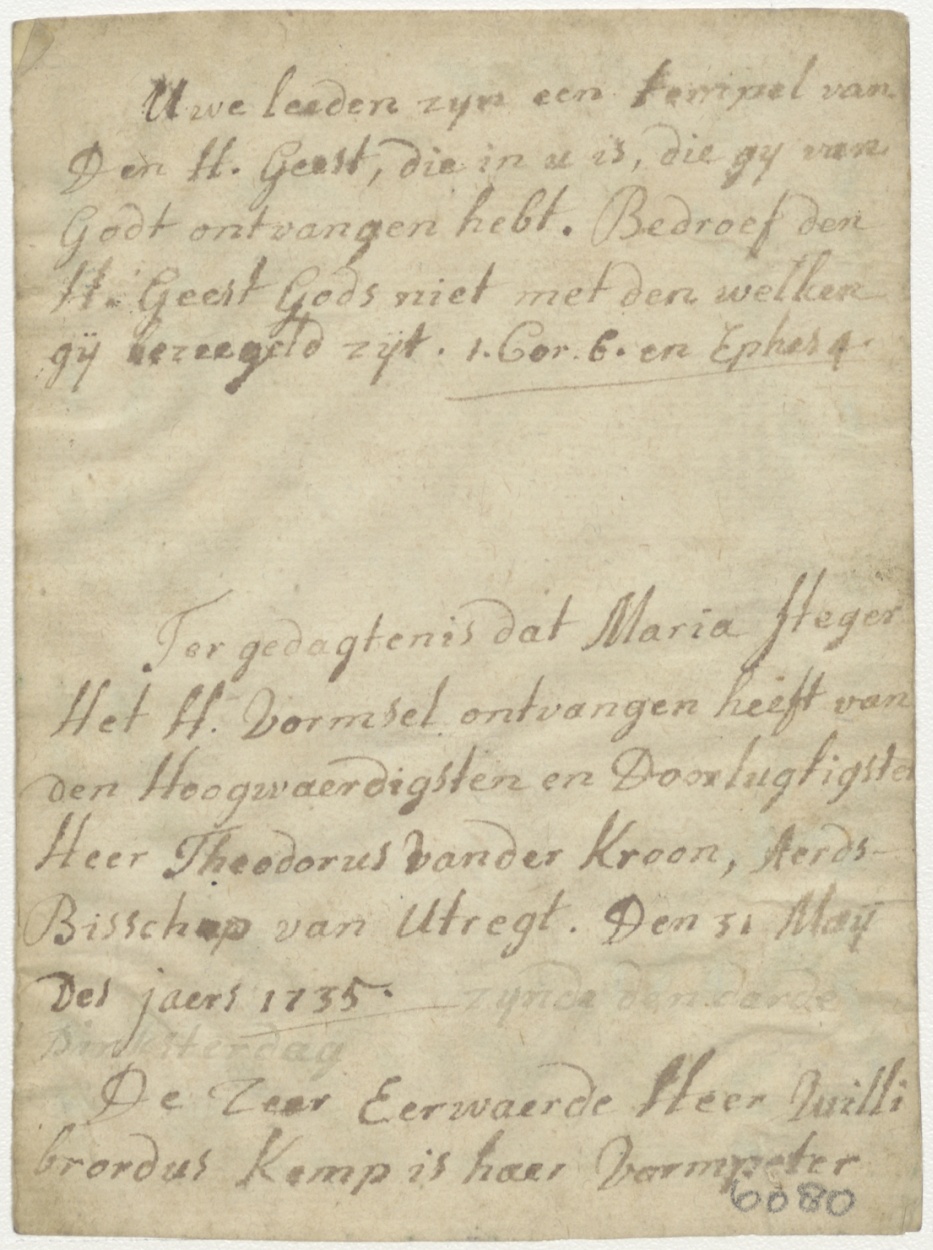 Uwe leeden zyn een tempel van
Den H. Geest, die in u is, die gy van
Godt ontvangen hebt. Bedroef den
H. Geest Gods niet met den welken
gÿ bezeegeld zÿt. 1. Cor. 6. en Ephes 4.
Ter gedagtenis dat Maria Steger
Het H. Vormsel ontvangen heeft van
den Hoogwaerdigsten en Doorlugtigsten
Heer Theodorus vander Kroon, Aerds-
Bisschop van Utregt. Den 31 Maÿ
Des jaers 1735. zynde den darde
Pinksterdag
De Zeer Eerwaerde Heer Willi
brordus Kemp is haer Vormpeter
6080